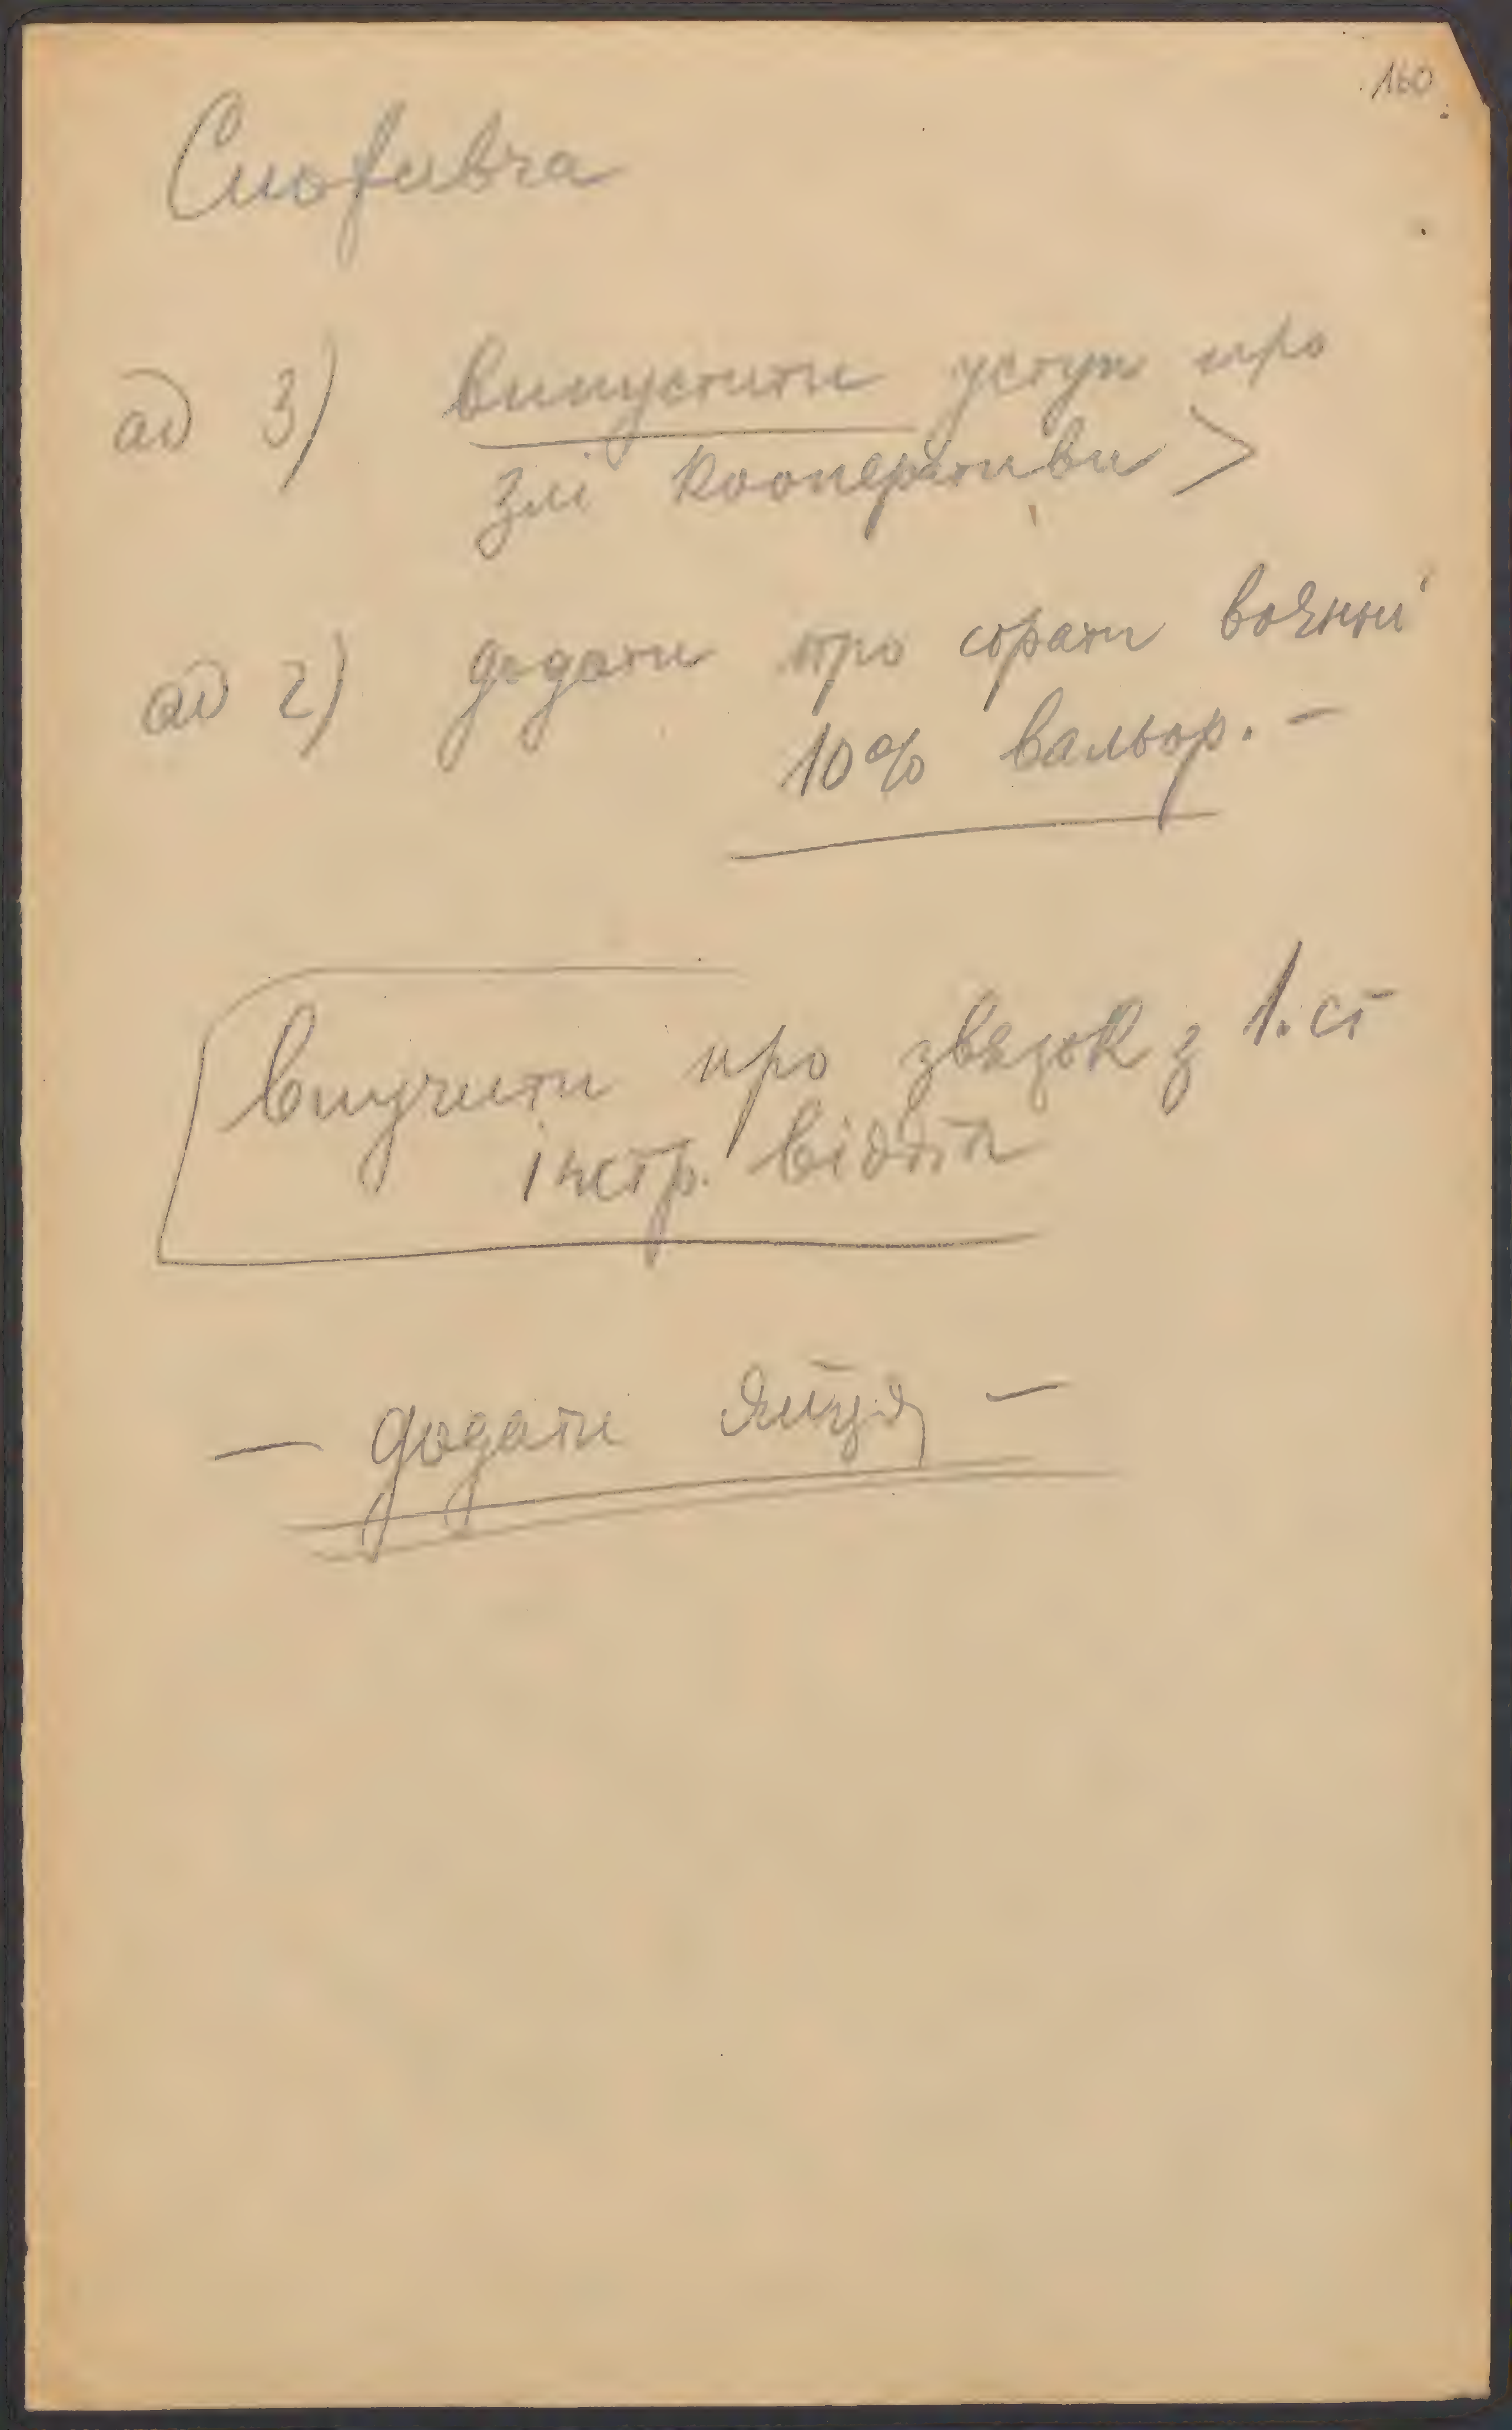 160
Споживча
ад 3) випустити уступ про
злі кооперативи >
ад 2) додати про страти воєнні
10% вальор. –
влучити про звязок з 1. ст
інстр. відділ
– додати яйця –